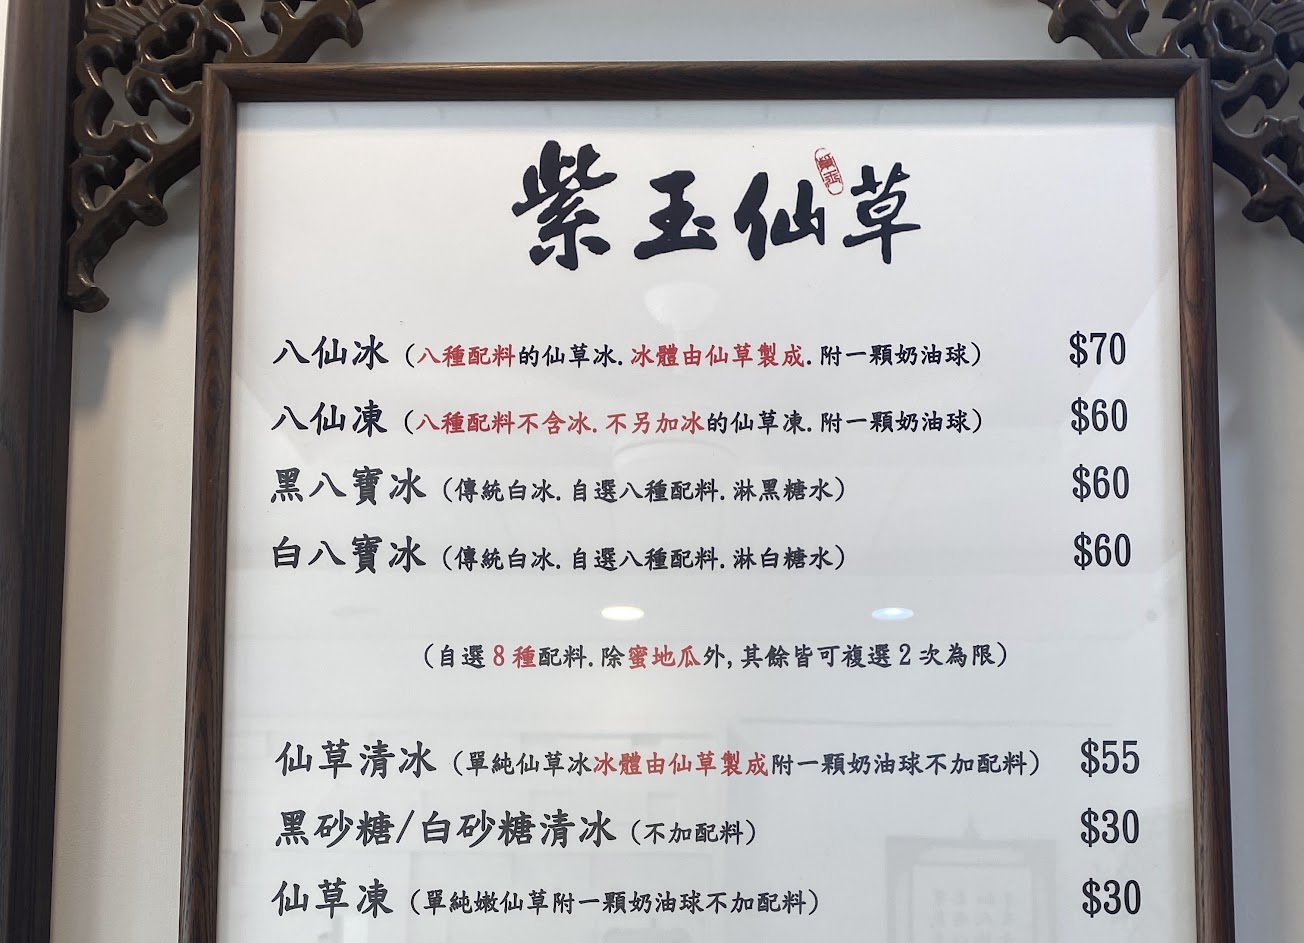 紫玉仙草
八仙冰（八種配料的仙草冰.冰體由仙草製成.附一顆奶油球） $70
八仙凍（八種配料不含冰.不另加冰的仙草凍.附一顆奶油球） $60
黑八寶冰（傳統白冰.自選八種配料.淋黑糖水） $60
白八寶冰（傳統白冰.自選八種配料.淋白糖水） $60
（自選8種配料.除蜜地瓜外,其餘皆可複選2次為限）
仙草清冰（單純仙草冰冰體由仙草製成附一顆奶油球不加配料） $55
黑砂糖/白砂糖清冰（不加配料） $30
仙草凍（單純嫩仙草附一顆奶油球不加配料） $30